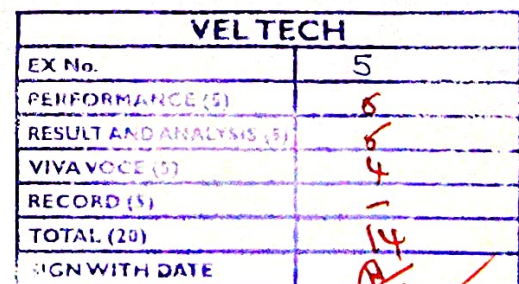 VEL TECH
EX No. 5
PERFORMANCE (5) 5
RESULT AND ANALYSIS (5) 5
VIVA VOCE (5) 4
RECORD (5) -
TOTAL (20) 14
SIGN WITH DATE